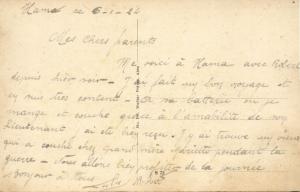 Hama ce 6-1-22
Mes chers parents
Me voici à Hama avec Robert
depuis hier soir - J'ai fait un bon voyage et
en suis très content - sa batterie où je
mange et couche grâce à l'amabilité de son
lieutenant, ai été bien reçu. J'y ai trouvé un
qui a couché chez grand'mère pendant la
guerre - Nous allons bien profiter de la journée
Bonjour à tous